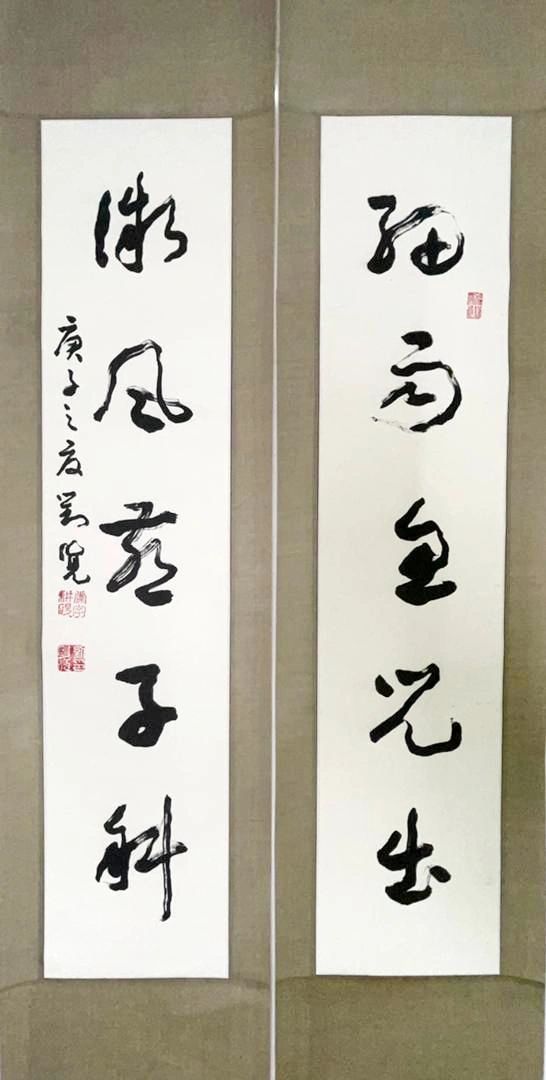 细雨鱼儿出
微风燕子斜
庚子之夏刘